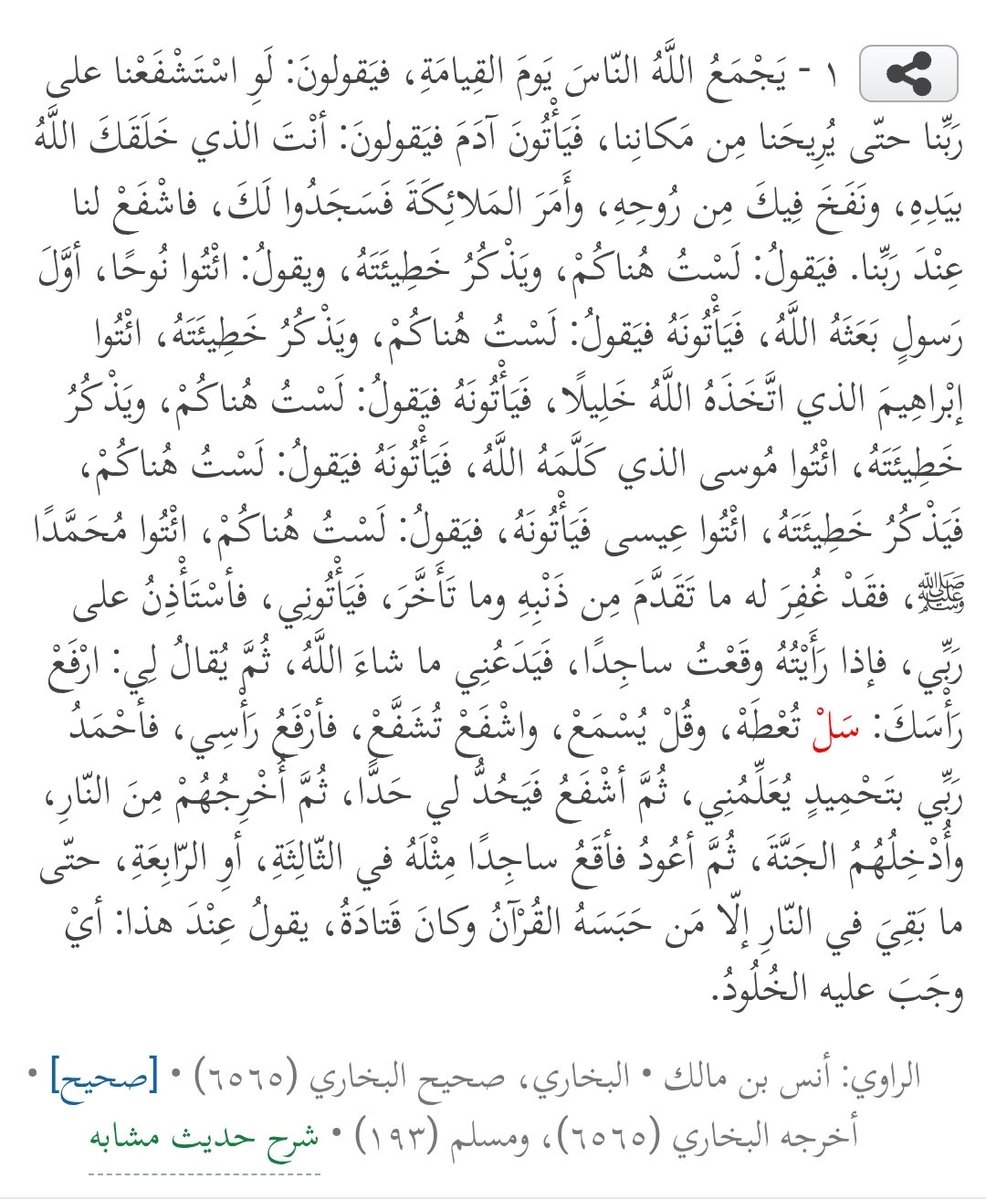 ١ - يَجْمَعُ اللَّهُ النّاسَ يَومَ القِيامَةِ، فيَقولونَ: لَوِ اسْتَشْفَعْنا على
رَبِّنا حتّى يُرِيحَنا مِن مَكانِنا، فَيَأْتُونَ آدَمَ فيَقولونَ: أنْتَ الذي خَلَقَكَ اللَّهُ
بيَدِهِ، ونَفَخَ فِيكَ مِن رُوحِهِ، وأَمَرَ المَلائِكَةَ فَسَجَدُوا لَكَ، فاشْفَعْ لنا
عِنْدَ رَبِّنا. فيَقولُ: لَسْتُ هُناكُمْ، ويَذْكُرُ خَطِيئَتَهُ، ويقولُ: ائْتُوا نُوحًا، أوَّلَ
رَسولٍ بَعَثَهُ اللَّهُ، فَيَأْتُونَهُ فيَقولُ: لَسْتُ هُناكُمْ، ويَذْكُرُ خَطِيئَتَهُ، ائْتُوا
إبْراهِيمَ الذي اتَّخَذَهُ اللَّهُ خَلِيلًا، فَيَأْتُونَهُ فيَقولُ: لَسْتُ هُناكُمْ، ويَذْكُرُ
خَطِيئَتَهُ، ائْتُوا مُوسى الذي كَلَّمَهُ اللَّهُ، فَيَأْتُونَهُ فيَقولُ: لَسْتُ هُناكُمْ،
فَيَذْكُرُ خَطِيئَتَهُ، ائْتُوا عِيسى فَيَأْتُونَهُ، فيَقولُ: لَسْتُ هُناكُمْ، ائْتُوا مُحَمَّدًا
ﷺ، فقَدْ غُفِرَ له ما تَقَدَّمَ مِن ذَنْبِهِ وما تَأَخَّرَ، فَيَأْتُونِي، فأسْتَأْذِنُ على
رَبِّي، فإذا رَأَيْتُهُ وقَعْتُ ساجِدًا، فَيَدَعُنِي ما شاءَ اللَّهُ، ثُمَّ يُقالُ لِي: ارْفَعْ
رَأْسَكَ: سَلْ تُعْطَهْ، وقُلْ يُسْمَعْ، واشْفَعْ تُشَفَّعْ، فأرْفَعُ رَأْسِي، فأحْمَدُ
رَبِّي بتَحْمِيدٍ يُعَلِّمُنِي، ثُمَّ أشْفَعُ فَيَحُدُّ لي حَدًّا، ثُمَّ أُخْرِجُهُمْ مِنَ النّارِ،
وأُدْخِلُهُمُ الجَنَّةَ، ثُمَّ أعُودُ فأقَعُ ساجِدًا مِثْلَهُ في الثّالِثَةِ، أوِ الرّابِعَةِ، حتّى
ما بَقِيَ في النّارِ إلّا مَن حَبَسَهُ القُرْآنُ وكانَ قَتادَةُ، يقولُ عِنْدَ هذا: أيْ
وجَبَ عليه الخُلُودُ.
الراوي: أنس بن مالك • البخاري، صحيح البخاري (٦٥٦٥) • [صحيح] •
أخرجه البخاري (٦٥٦٥)، ومسلم (١٩٣) • شرح حديث مشابه